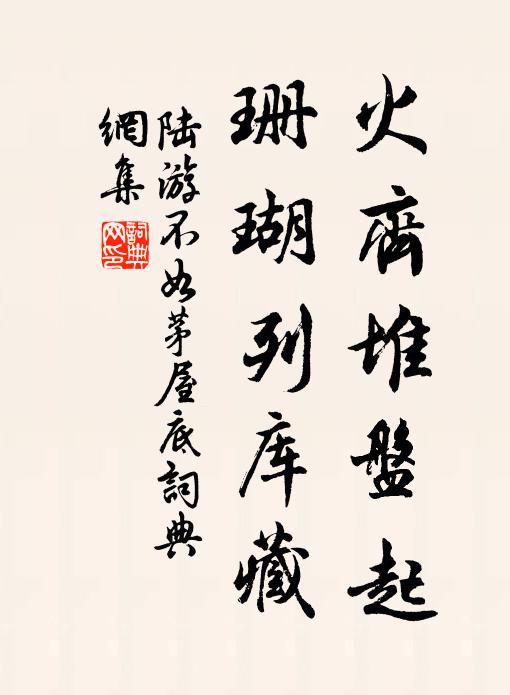 火齊堆盤起
珊瑚列库藏
陆游不如茅屋底詞典
網集
詞典
网印